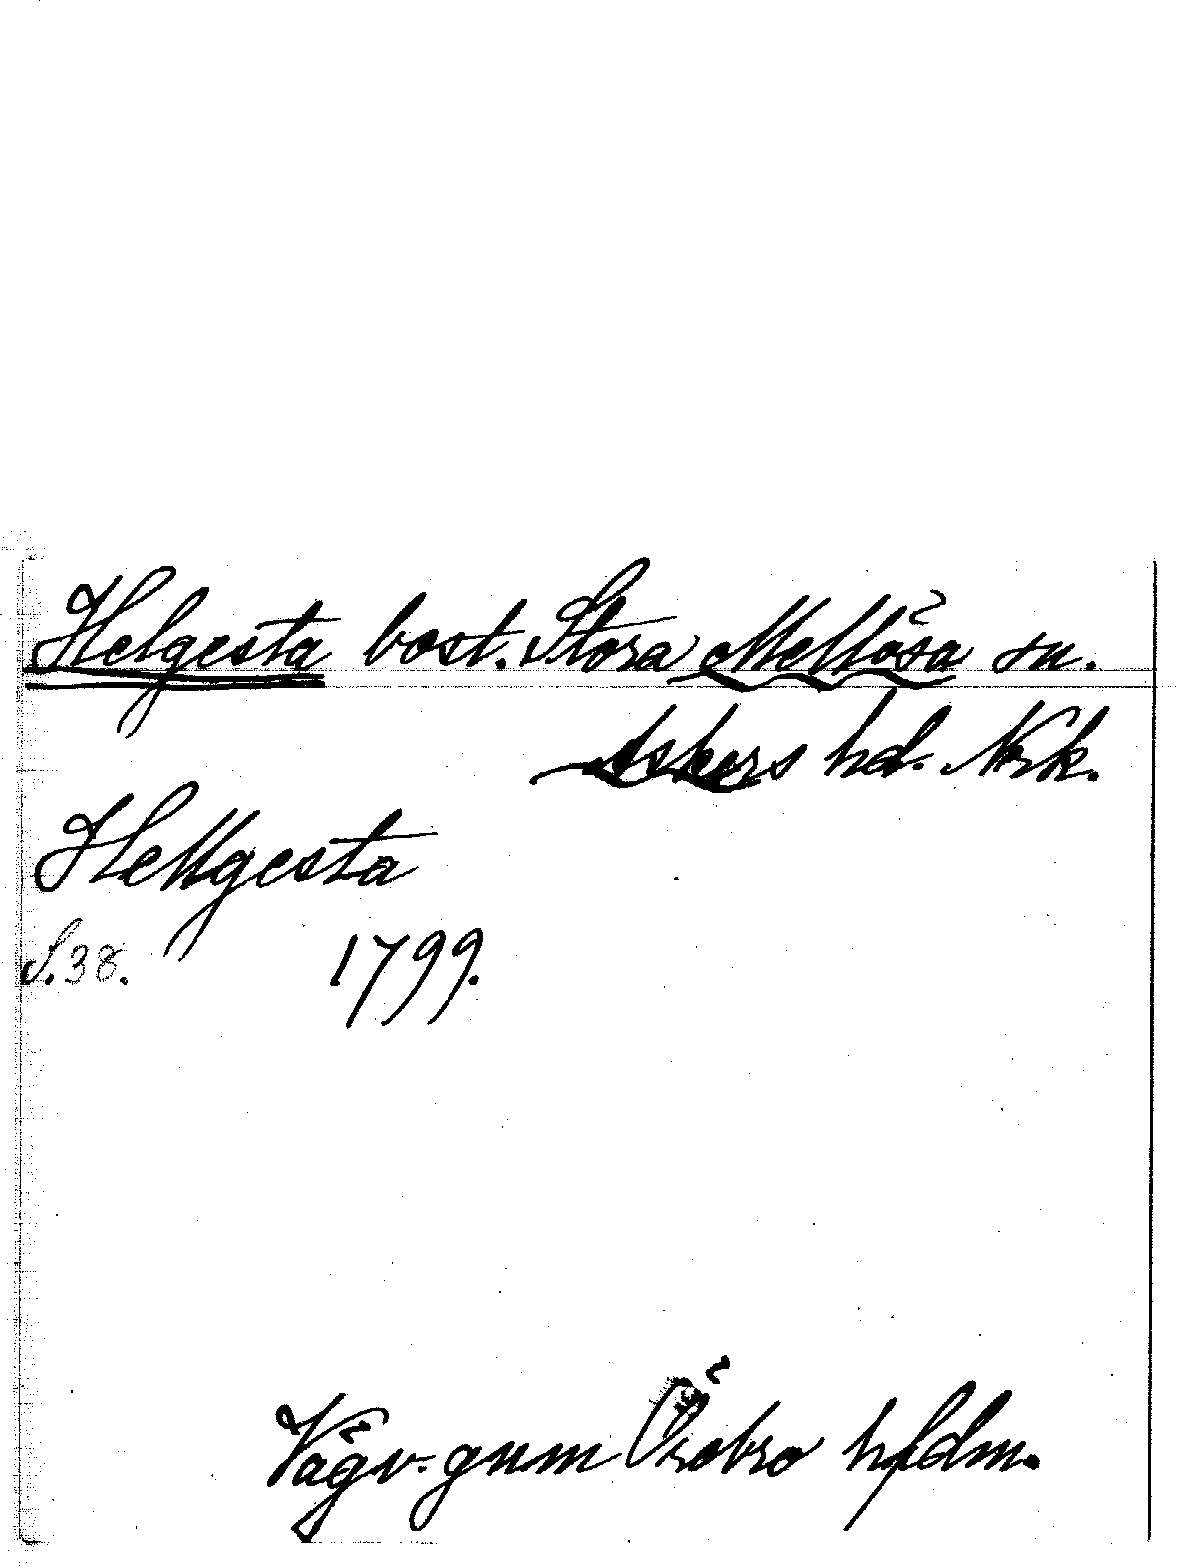 Helgesta bost. Stora Mellösa sn.
Askers hd. Nrk.
Hellgesta
S. 38. 1799.
Vägv. gnm Örebro hfdm.